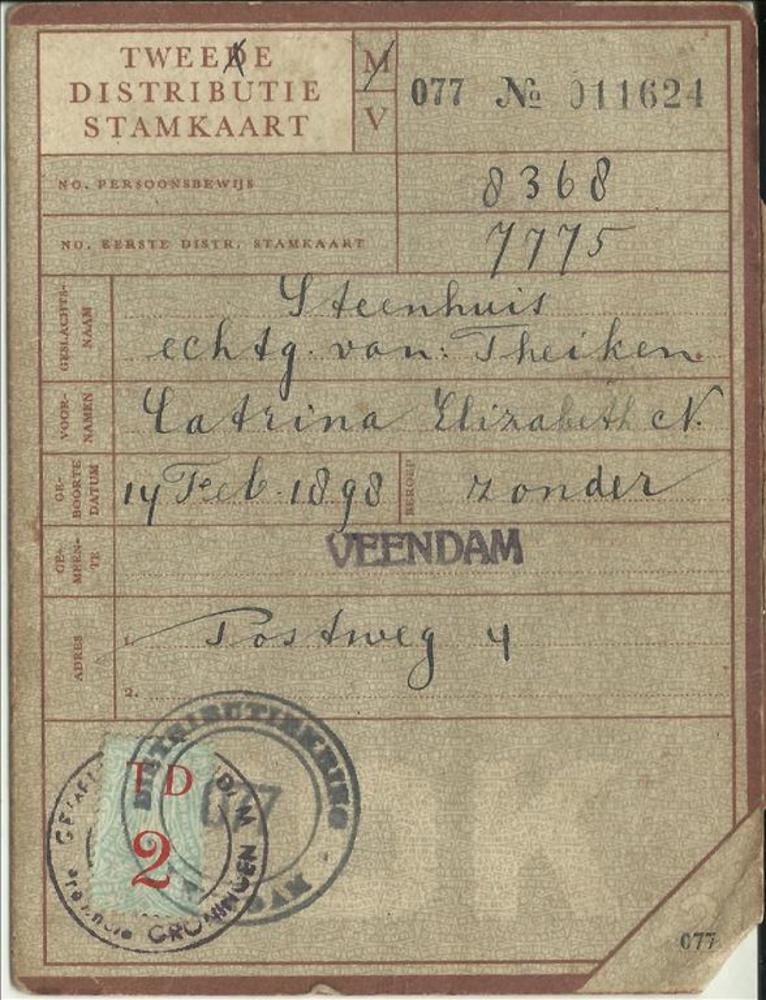 TWEEDE
DISTRIBUTIE
STAMKAART
M
V
077 № 011624
NO. PERSOONSBEWIJS
8368
NO. EERSTE DISTR. STAMKAART
7775
GESLACHTS-
NAAM
Steenhuis
echtg. van: Theiken.
VOOR-
NAMEN
Catrina Elizabeth N.
GE-
BOORTE
DATUM
14 Feb. 1898
BEROEP
zonder
GE-
MEEN-
TE
VEENDAM
ADRES
1. Postweg 4
2.
DISTRIBUTIEKRING
077
TD
2
provincie GRONINGEN
DK
077